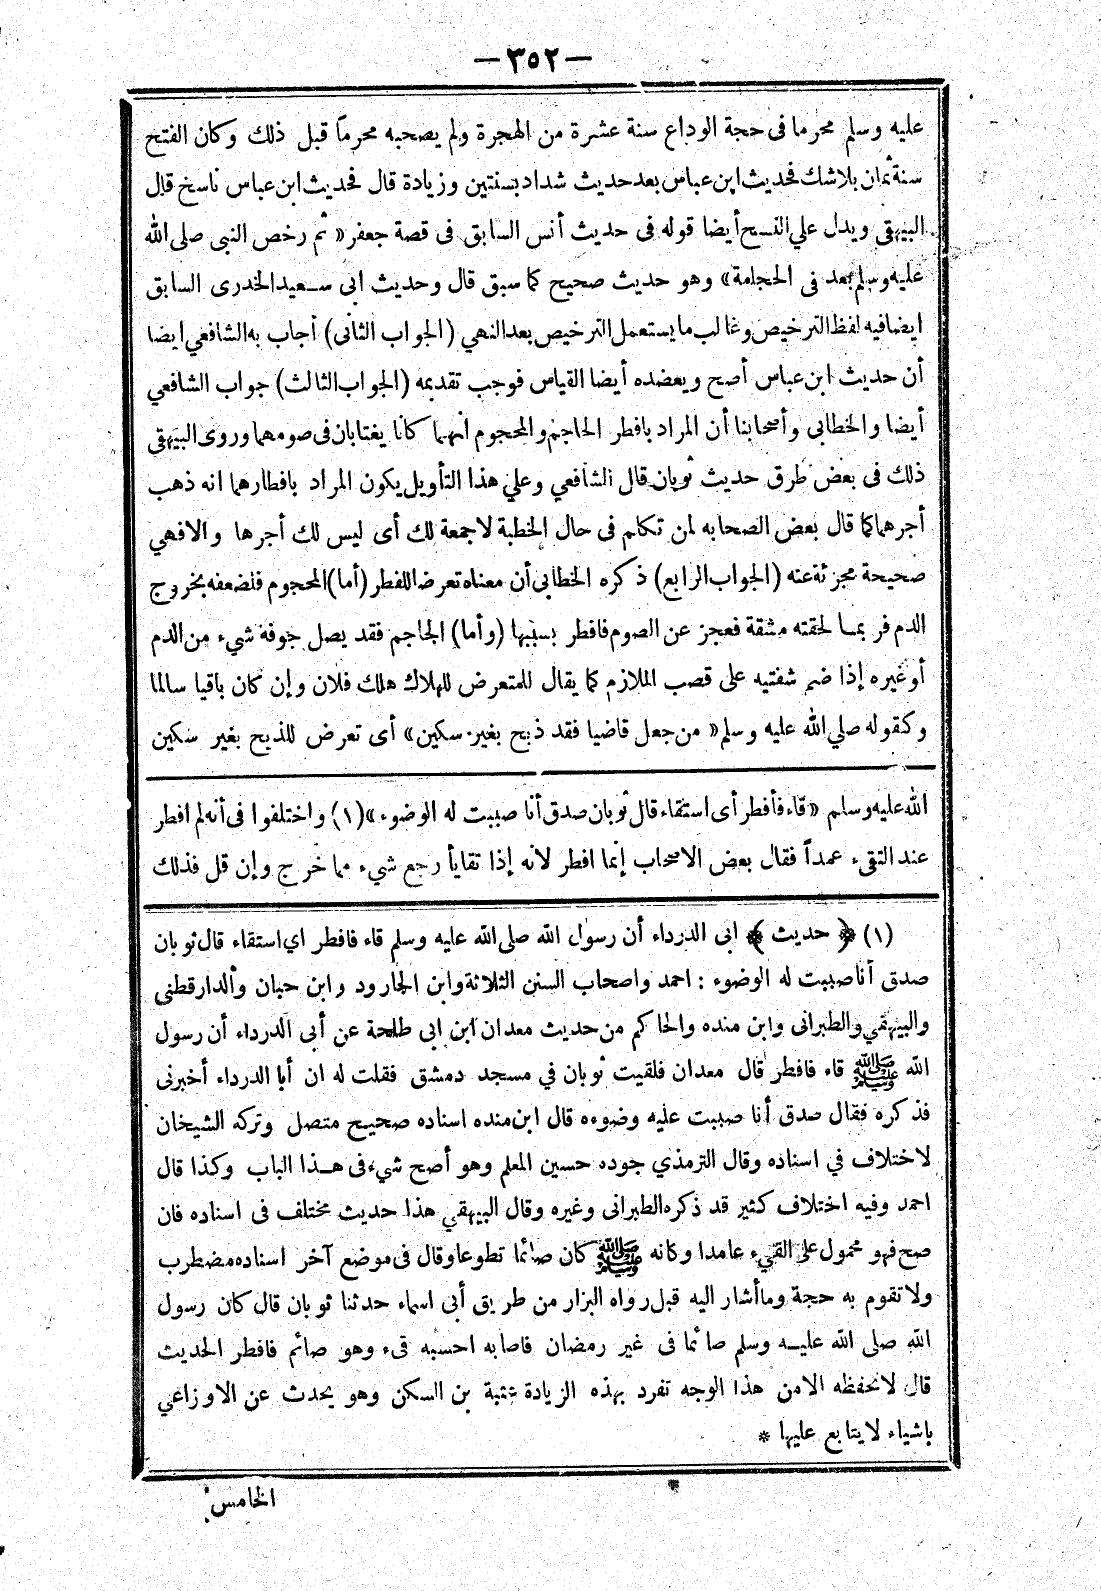 — ٣٥٢ —
عليه وسلم محرما فى حجة الوداع سنة عشرة من الهجرة ولم يصحبه محرماً قبل ذلك وكان الفتح
سنة ثمان بلاشك فحديث ابن عباس بعد حديث شداد بسنتين وزيادة قال فحديث ابن عباس ناسخ قال
البيهقى ويدل علي النسخ أيضا قوله فى حديث أنس السابق فى قصة جعفر « ثم رخص النبى صلى الله
عليه وسلم بعد فى الحجامة » وهو حديث صحيح كما سبق قال وحديث ابى سعيد الخدرى السابق
ايضا فيه لفظ الترخيص وغالب ما يستعمل الترخيص بعد النهي ( الجواب الثانى ) أجاب به الشافعي ايضا
أن حديث ابن عباس أصح ويعضده أيضا القياس فوجب تقديمه ( الجواب الثالث ) جواب الشافعي
أيضا والخطابى وأصحابنا أن المراد بافطر الحاجم والمحجوم انهما كانا يغتابان فى صومهما وروى البيهقى
ذلك فى بعض طرق حديث ثوبان قال الشافعي وعلي هذا التأويل يكون المراد بافطارهما انه ذهب
أجرهما كما قال بعض الصحابه لمن تكلم فى حال الخطبة لاجمعة لك أى ليس لك أجرها والافهي
صحيحة مجزئة عنه ( الجواب الرابع ) ذكره الخطابى أن معناه تعرضا للفطر ( أما ) المحجوم فلضعفه بخروج
الدم فربما لحقته مشقة فعجز عن الصوم فافطر بسببها ( وأما ) الحاجم فقد يصل جوفه شيء من الدم
أو غيره إذا ضم شفتيه على قصب الملازم كما يقال للمتعرض للهلاك هلك فلان وإن كان باقيا سالما
وكقوله صلي الله عليه وسلم « من جعل قاضيا فقد ذبح بغير سكين » أى تعرض للذبح بغير سكين
الله عليه وسلم « قاء فأفطر أى استقاء قال ثوبان صدق أنا صببت له الوضوء » (١) واختلفوا فى أنه لم افطر
عند التقىء عمداً فقال بعض الاصحاب إنما افطر لأنه إذا تقايأ رجع شيء مما خرج وإن قل فذلك
(١) ﴿ حديث ﴾ ابى الدرداء أن رسول الله صلى الله عليه وسلم قاء فافطر اي استقاء قال ثوبان
صدق أنا صببت له الوضوء : احمد واصحاب السنن الثلاثة وابن الجارود وابن حبان والدارقطنى
والبيهقي والطبرانى وابن منده والحاكم من حديث معدان ابن ابى طلحة عن أبى الدرداء أن رسول
الله ﷺ قاء فافطر قال معدان فلقيت ثوبان في مسجد دمشق فقلت له ان أبا الدرداء أخبرنى
فذكره فقال صدق أنا صببت عليه وضوءه قال ابن منده اسناده صحيح متصل وتركه الشيخان
لاختلاف في اسناده وقال الترمذي جوده حسين المعلم وهو أصح شيء فى هذا الباب وكذا قال
احمد وفيه اختلاف كثير قد ذكره الطبرانى وغيره وقال البيهقي هذا حديث مختلف فى اسناده فان
صح فهو محمول على القيء عامدا وكانه ﷺ كان صائما تطوعا وقال فى موضع آخر اسناده مضطرب
ولا تقوم به حجة وما أشار اليه قبل رواه البزار من طريق أبى اسماء حدثنا ثوبان قال كان رسول
الله صلى الله عليه وسلم صائما فى غير رمضان فاصابه احسبه قىء وهو صائم فافطر الحديث
قال لانحفظه الامن هذا الوجه تفرد بهذه الزيادة عتبة بن السكن وهو يحدث عن الاوزاعي
باشياء لايتابع عليها *
الخامس